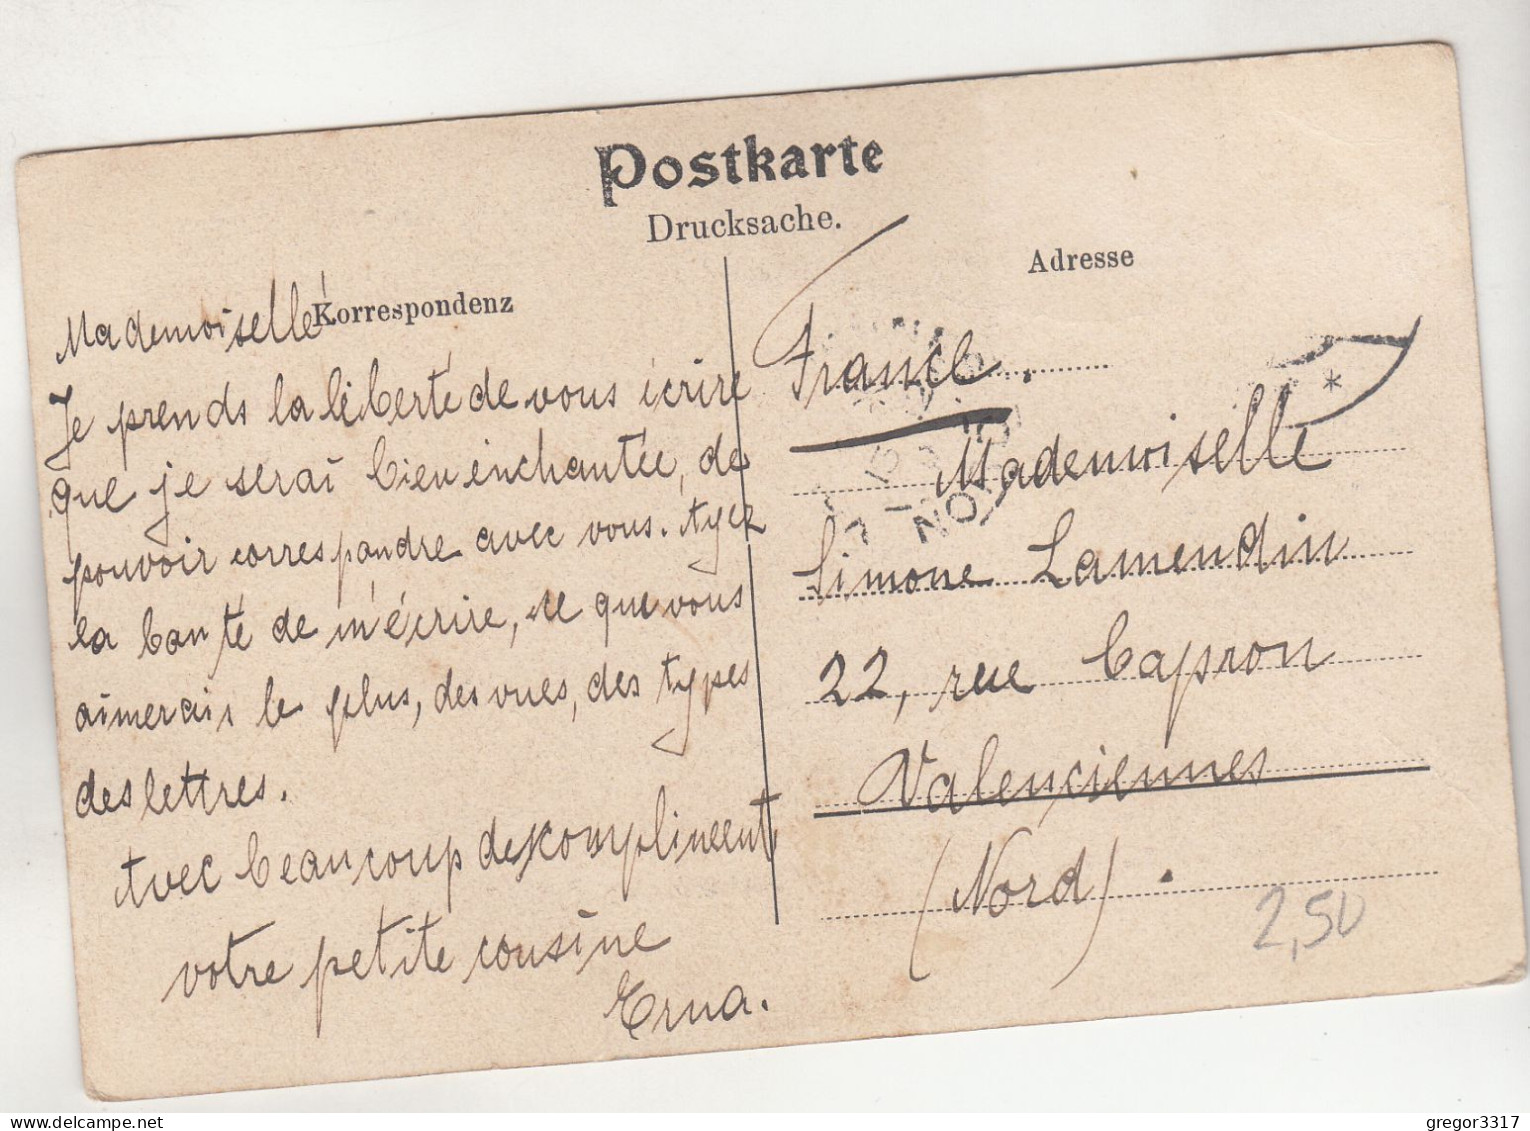 Postkarte
Drucksache.
Korrespondenz
Mademoiselle
Je prends la liberté de vous écrire
que je serai bien enchantée, de
pouvoir correspondre avec vous. Ayez
la bonté de m'écrire, ce que vous
aimerais le plus, des vues, des types
des lettres.
Avec beaucoup de
votre petite cousine
Erna.
Adresse
France.
Mademoiselle
Simone Lamendin
22, rue Capron
Valenciennes
(Nord).
2,50
delcampe.net
gregor3317